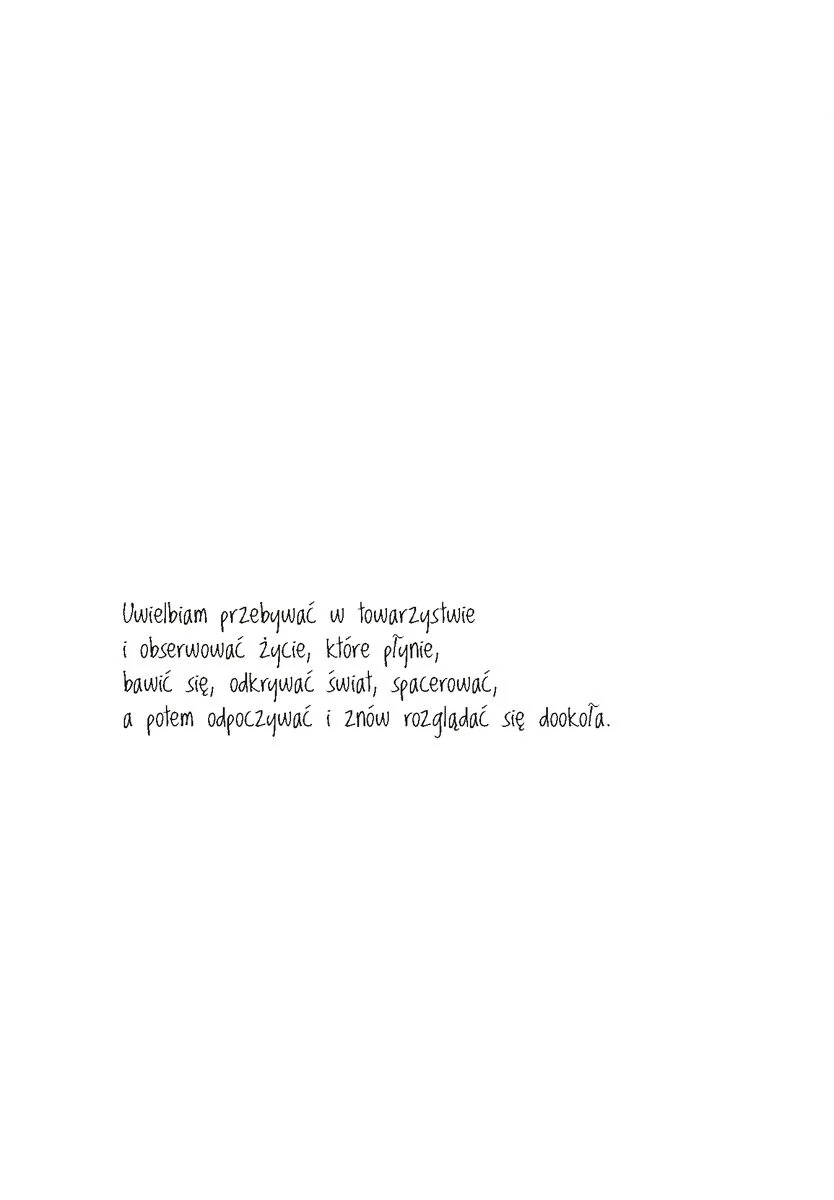 Uwielbiam przebywać w towarzystwie
i obserwować życie, które płynie,
bawić się, odkrywać świat, spacerować,
a potem odpoczywać i znów rozglądać się dookoła.